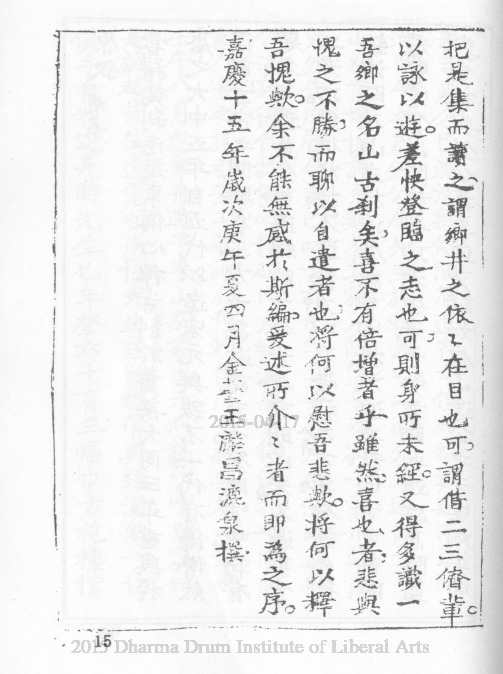 把是集而讀之謂鄉井之依々在目也可謂偕二三儕輩。
以詠以遊。差快登臨之志也可則身所未經。又得多識一
吾鄉之名山古刹矣喜不有倍增者乎雖然喜也者悲與
愧之不勝而聊以自遣者也將何以慰吾悲歟。將何以釋
吾愧歟。余不能無感於斯編。爰述所介々者而即為之序。
嘉慶十五年歲次庚午夏四月金臺王 昌漉泉撰
15
2015-04-17
2013 Dharma Drum Institute of Liberal Arts